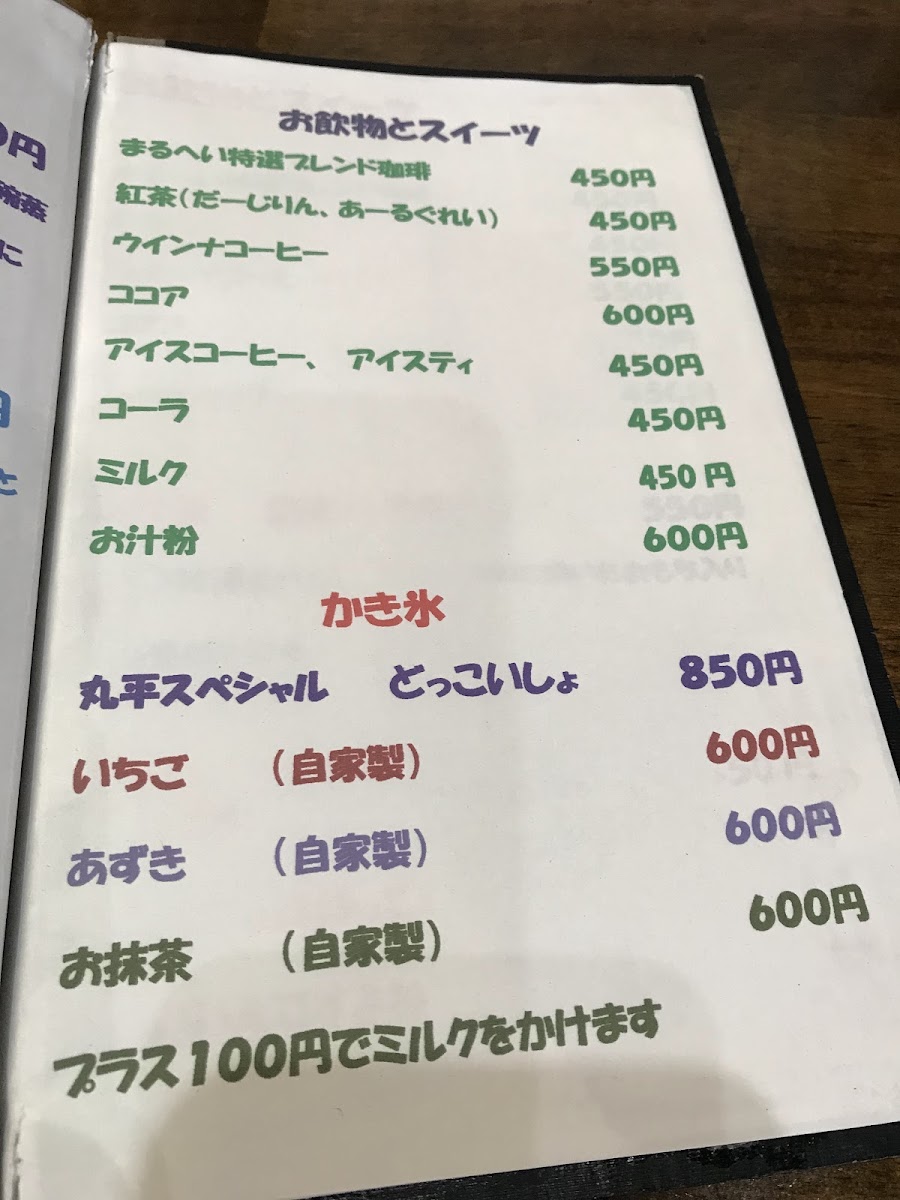 円
に
お飲物とスイーツ
まるへい特選ブレンド珈琲 450円
紅茶(だーじりん、あーるぐれい) 450円
ウインナコーヒー 550円
ココア 600円
アイスコーヒー、 アイスティ 450円
コーラ 450円
ミルク 450円
お汁粉 600円
かき氷
丸平スペシャル どっこいしょ 850円
いちご (自家製) 600円
あずき (自家製) 600円
お抹茶 (自家製) 600円
プラス100円でミルクをかけます